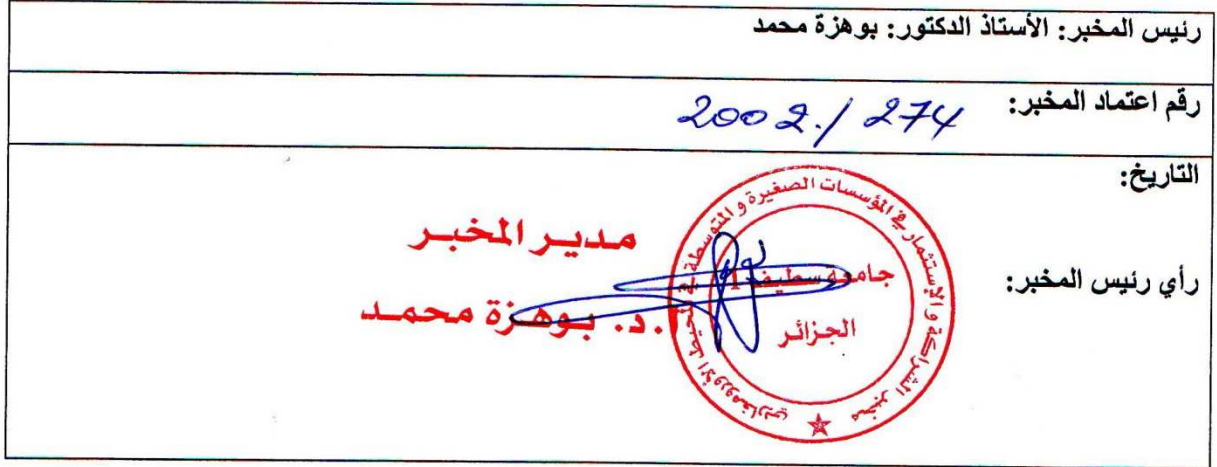 رئيس المخبر: الأستاذ الدكتور: بوهزة محمد
رقم اعتماد المخبر: 2002./274
التاريخ:
رأي رئيس المخبر:
مدير المخبر
أ.د. بوهزة محمد
مخبر الشراكة و الإستثمار في المؤسسات الصغيرة و المتوسطة في الفضاء الأورومغاربي
جامعة سطيف 1
الجزائر